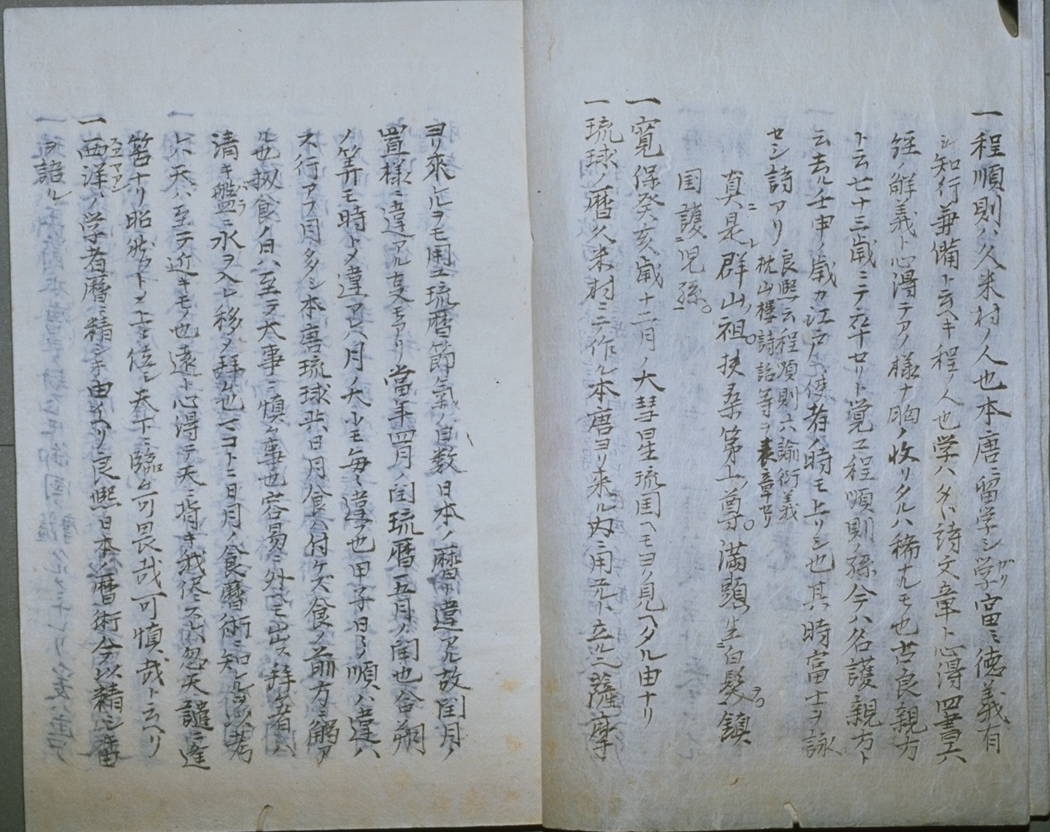 一 程順則ハ久米村ノ人也本唐ニ留学シ学富ミ徳義有
シ知行兼備ト云ヘキ程ノ人也学ハタヽ詩文章ト心得四書六
経ノ解義ト心得テアノ様ナ胸ニ収リタルハ稀ナルモ也世良親方
ト云七十三歳ニテ卒セリト覚ユ程順則ノ孫今ハ名護親方ト
云去ル壬申ノ歳カ江戸ヘ使者ノ時モ上リシ也其時富士ヲ詠
セシ詩アリ 良熙云程順則六諭衍義
枕山樓詩話等ヲ表章セリ
真是群山祖。扶桑第一尊。満頭生白髪。鎮
国護児孫。
一 寛保癸亥歳十二月ノ大彗星琉国ヘモヨク見ヘタル由ナリ
一 琉球ノ暦久米村ニテ作ル本唐ヨリ来ル内ニ用元ハ立 薩摩
ヨリ来ルヲモ用ユ琉暦節氣ノ日数日本ノ暦ニ違アル故閏月ノ
置様ニ違アルヿモアリ當年四月ノ閏琉暦五月ノ閏也合朔
ノ筭モ時トメ違アヒ月ノ大小モ毎々違フ也甲子日ノ順ノ違ハ
不行アフ月多シ本唐琉球共日月食付ケズ食ノ前方ニ觸アル
也扨食ノ日ハ至テ大事ニ慎ム事也容易ニ外ニモ出ス拝者ハ
清キ艦ニ水ヲ入レ移メ拝ム也マコトニ日月ノ食暦術ニ知レタルヿ考
レハ天ハ至テ近キモノ也遠ト心得テ天ニ背キ我侭スレハ忽天譴ニ逢
筈ナリ昭然トメ上ニ位シ天下ニ臨ム可畏哉可慎哉ト云ヘリ
一 西洋ノ学者暦ニ精シキ由イヘリ良熙日本ノ暦術今以精シ審
ヲ詰ル